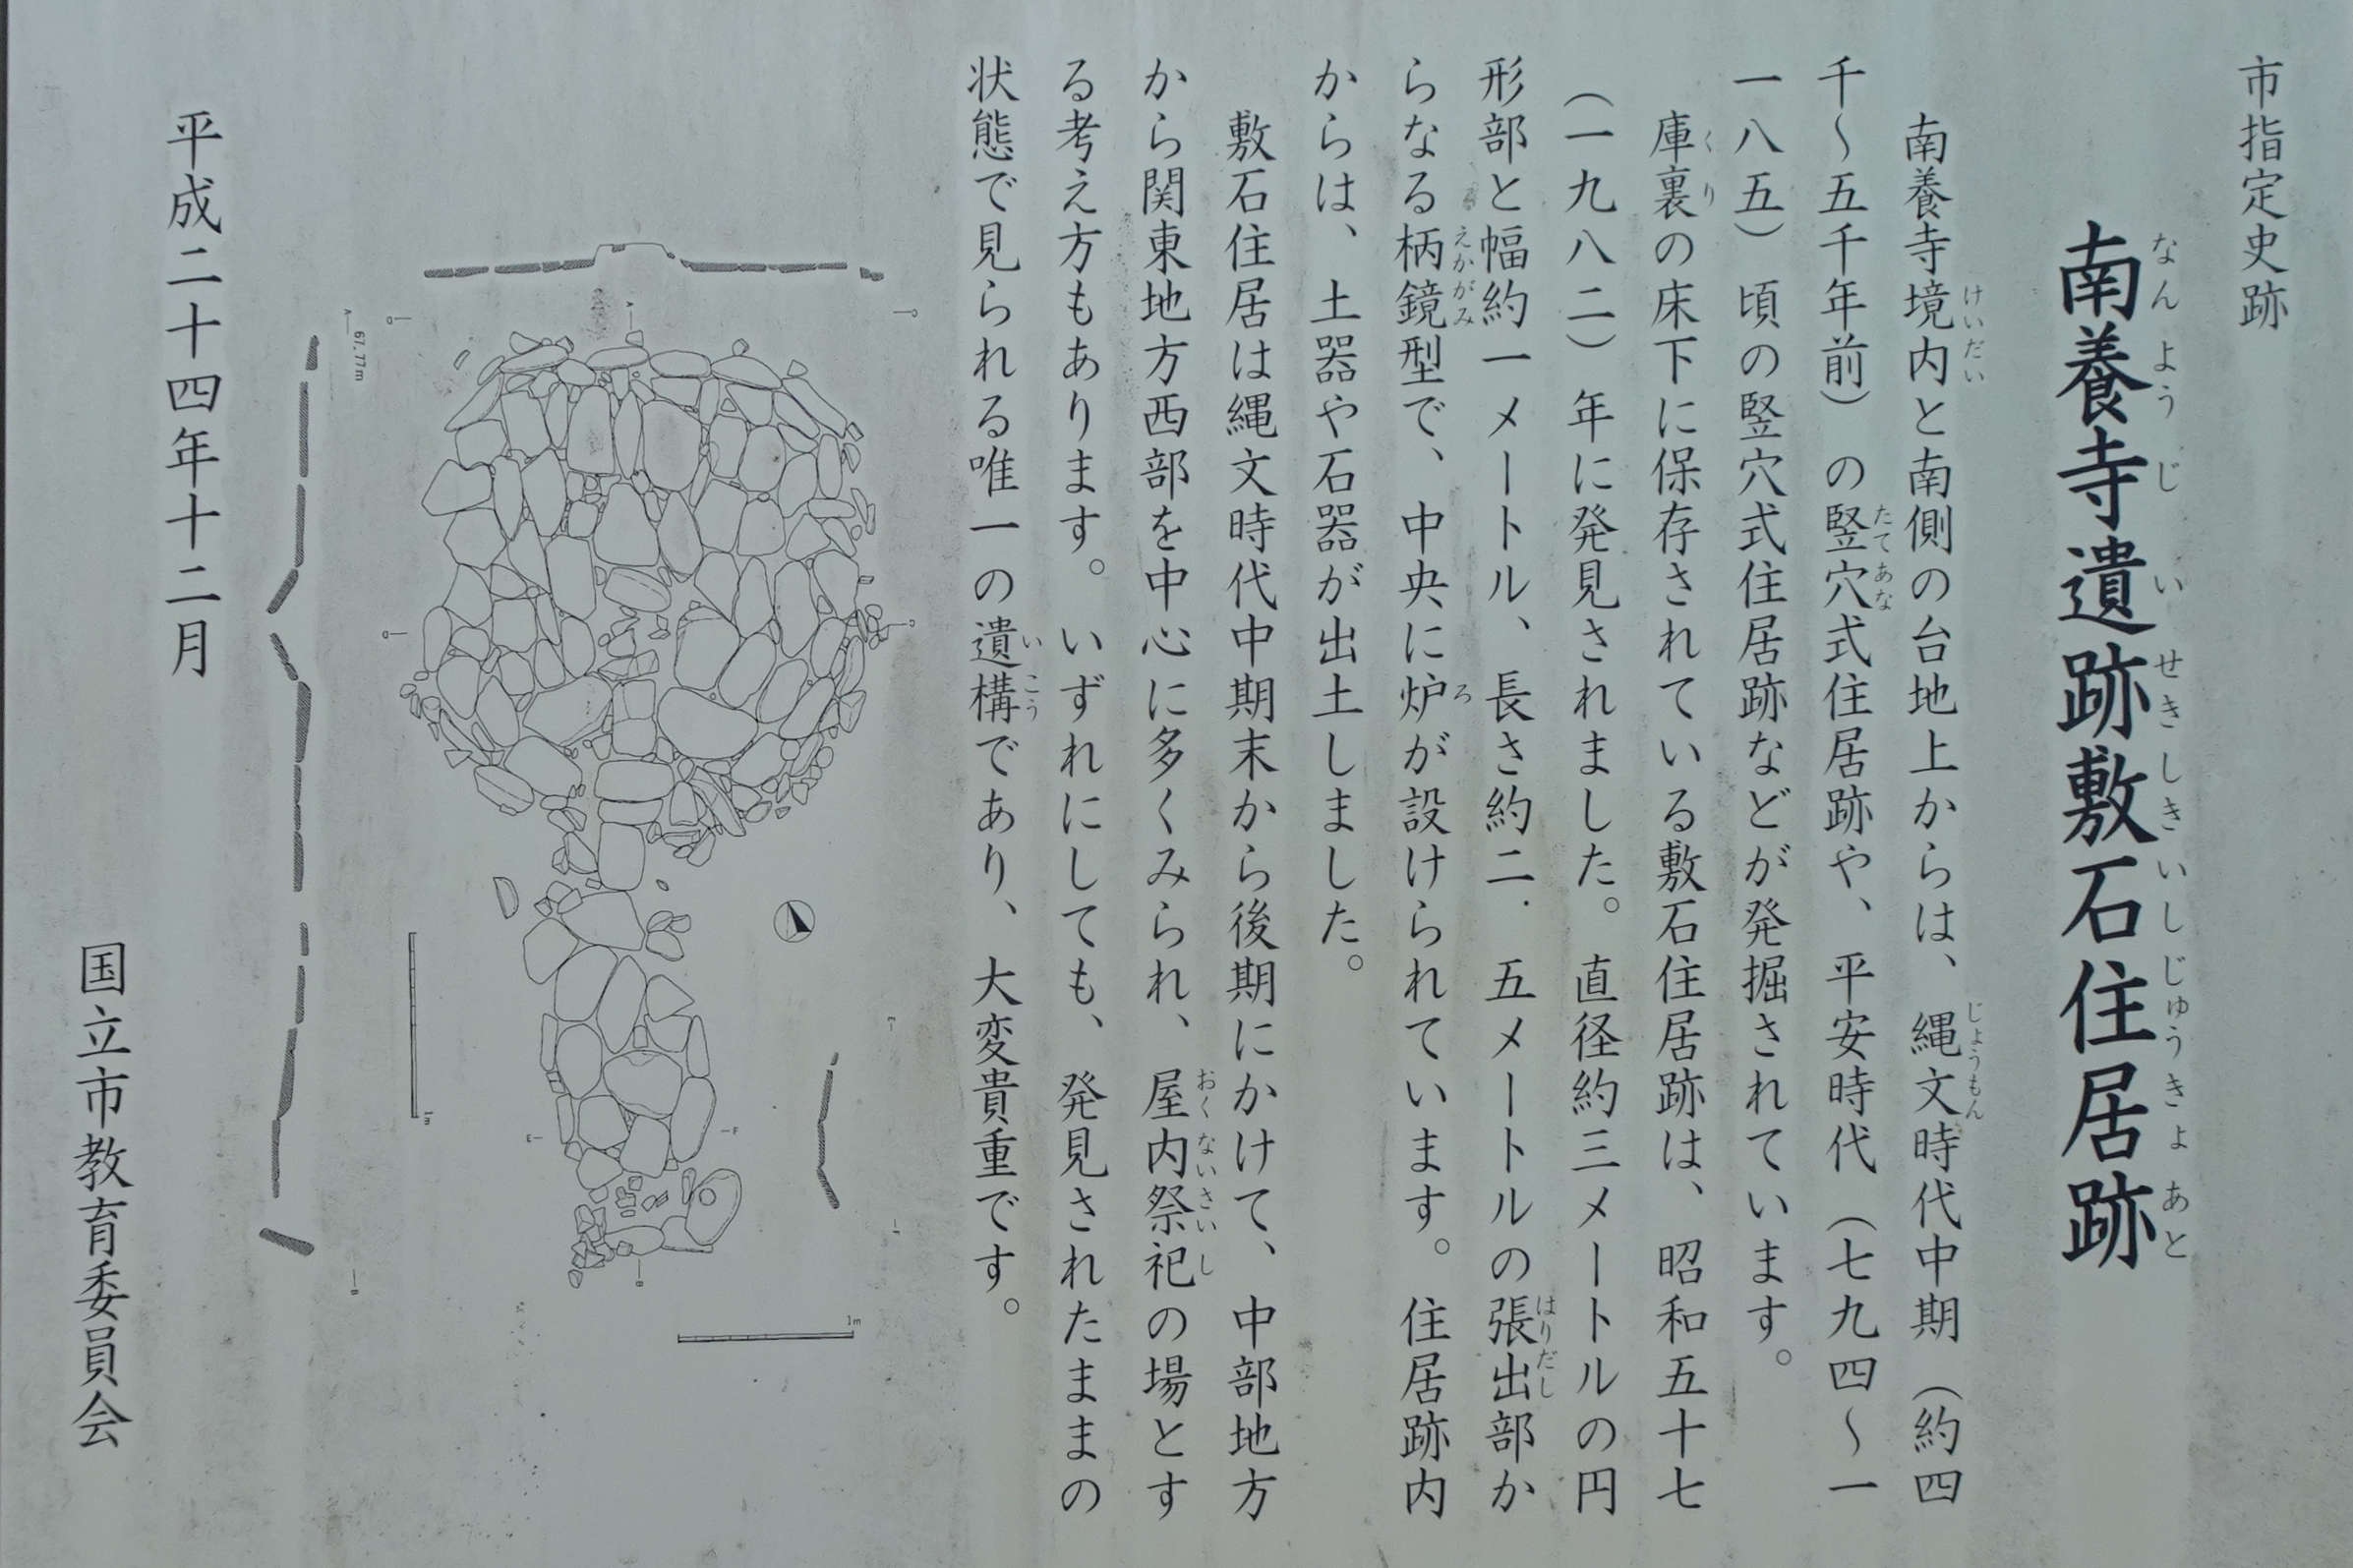 市指定史跡
南養寺遺跡敷石住居跡
なんようじいせきしきいしじゅうきょあと
南養寺境内と南側の台地上からは、縄文時代中期（約四
けいだい
じょうもん
千～五千年前）の竪穴式住居跡や、平安時代（七九四～一
たてあな
一八五）頃の竪穴式住居跡などが発掘されています。
庫裏の床下に保存されている敷石住居跡は、昭和五十七
くり
（一九八二）年に発見されました。直径約三メートルの円
形部と幅約一メートル、長さ約二．五メートルの張出部か
はりだし
らなる柄鏡型で、中央に炉が設けられています。住居跡内
えかがみ
ろ
からは、土器や石器が出土しました。
敷石住居は縄文時代中期末から後期にかけて、中部地方
から関東地方西部を中心に多くみられ、屋内祭祀の場とす
おくないさいし
る考え方もあります。いずれにしても、発見されたままの
状態で見られる唯一の遺構であり、大変貴重です。
いこう
67.77m
1m
平成二十四年十二月
国立市教育委員会